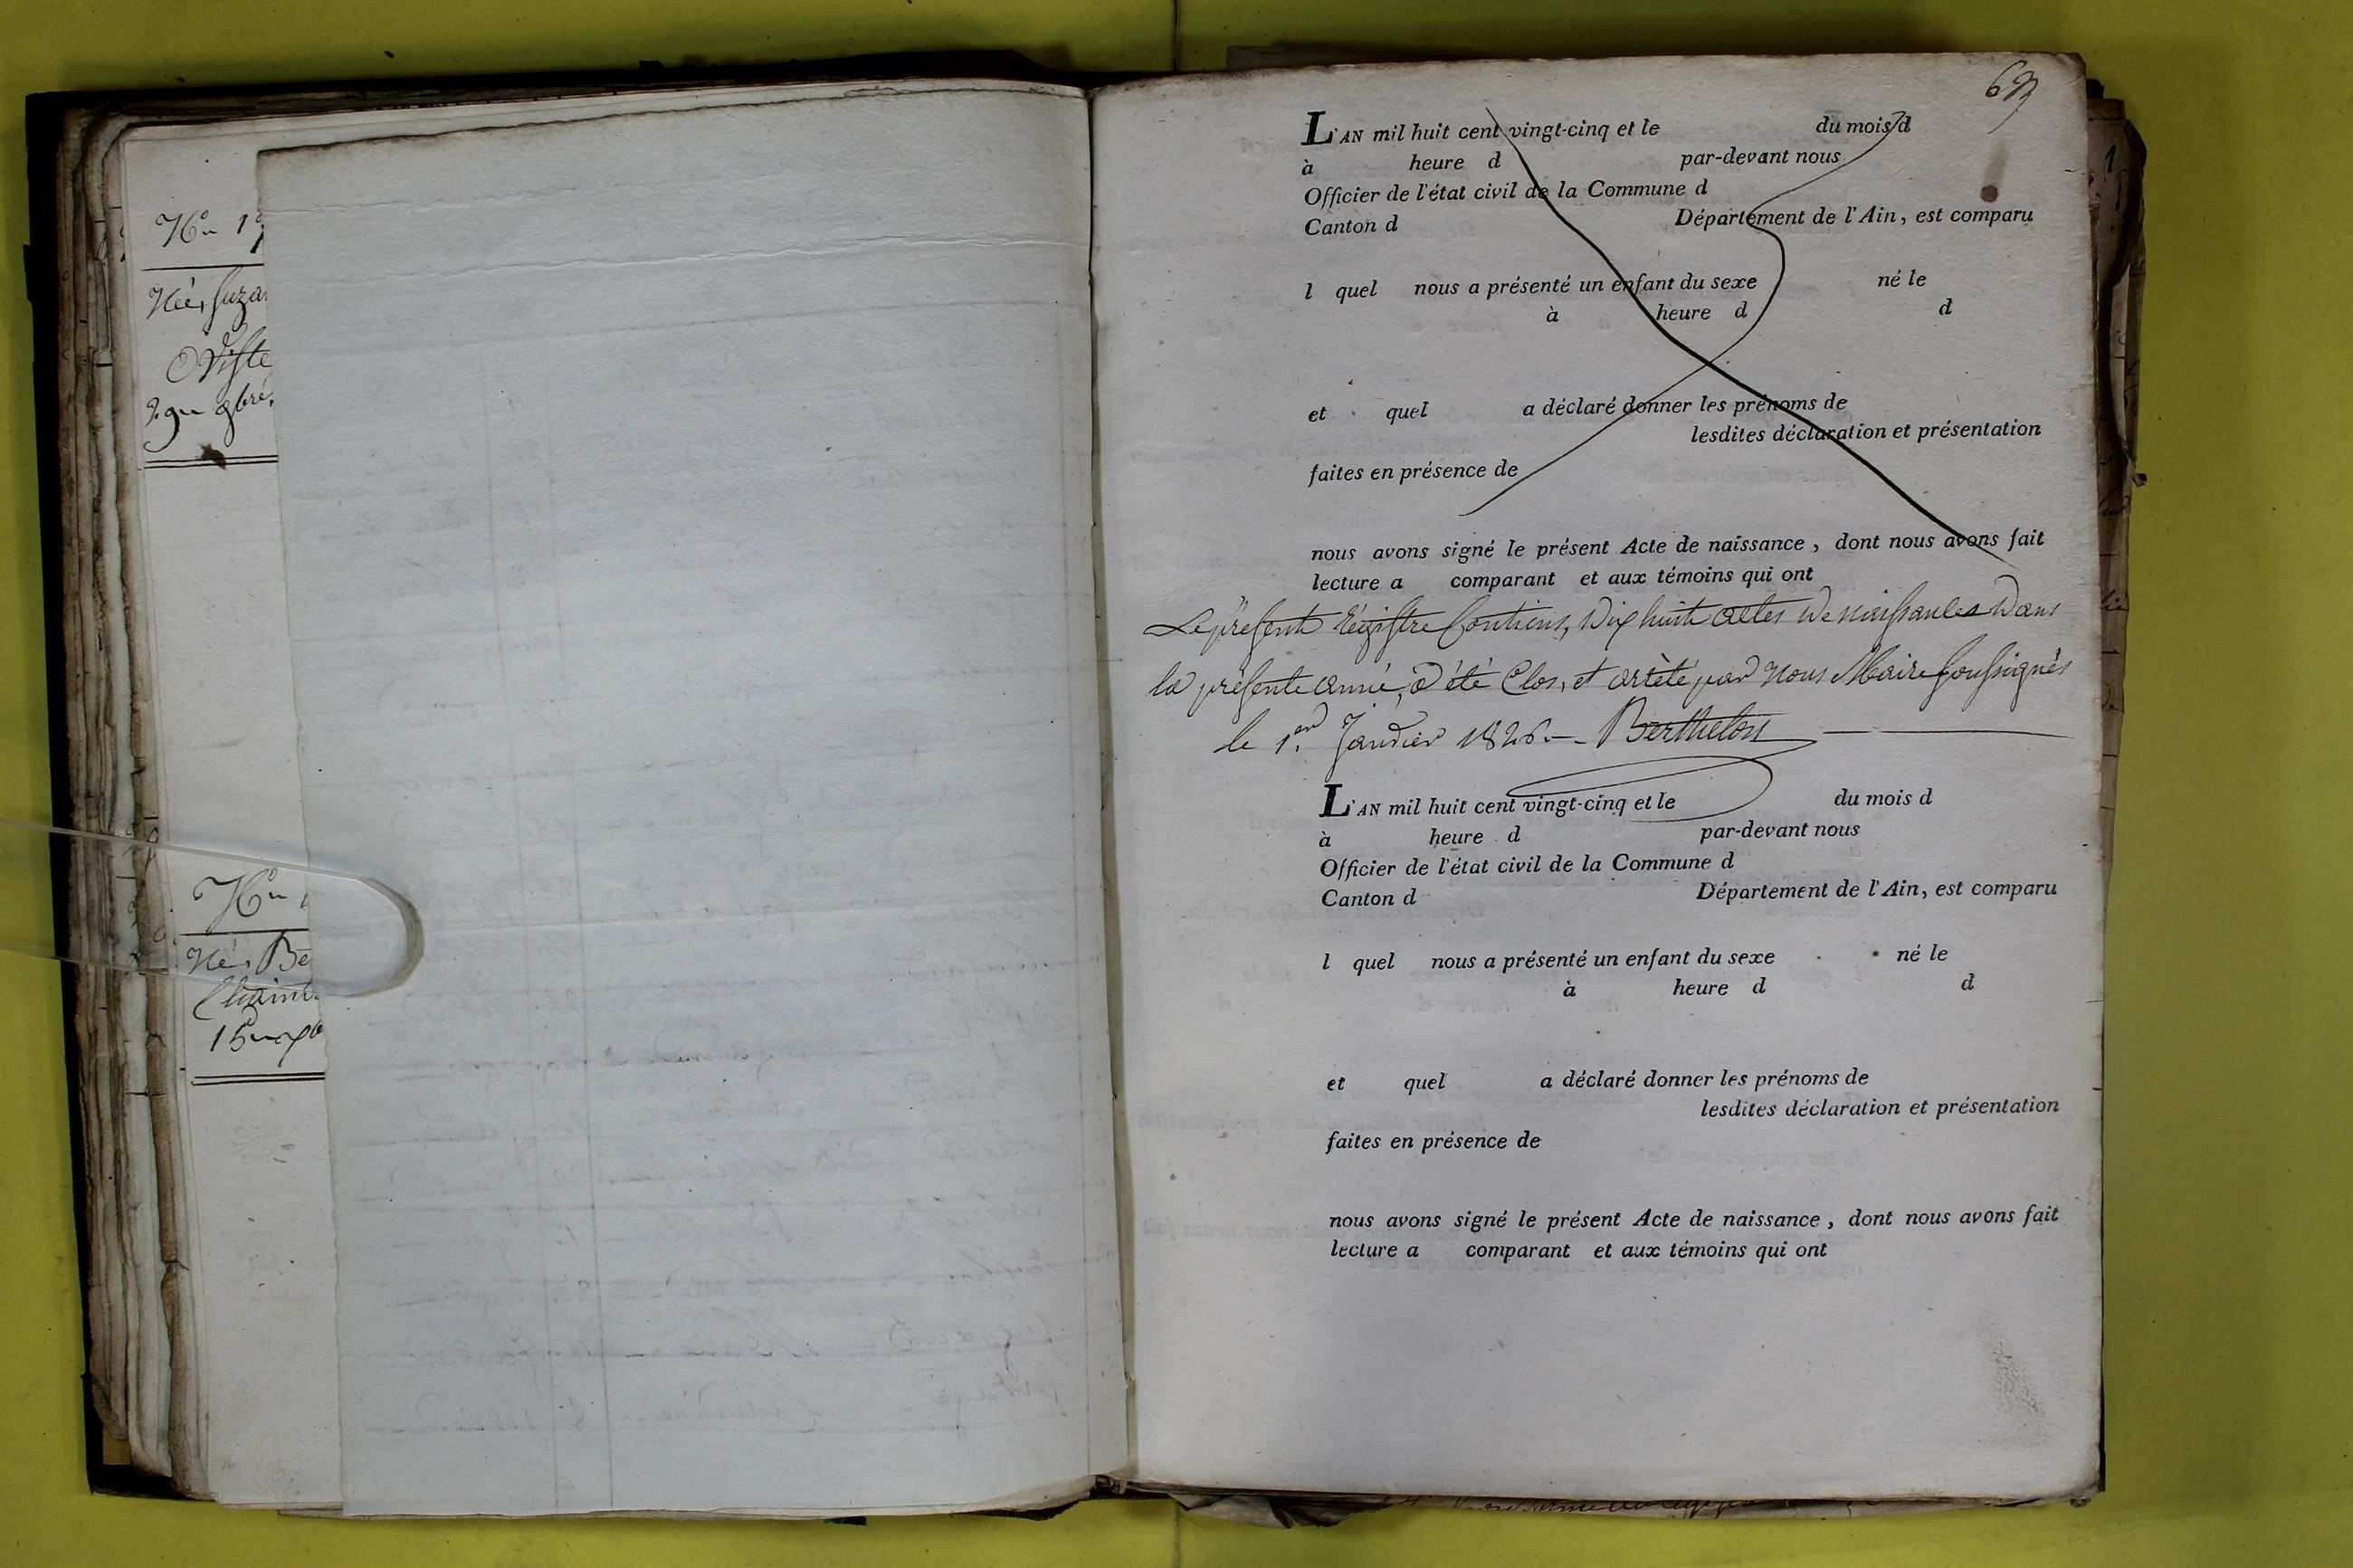 Née, Suza
Viste
Née, Be
L'AN mil huit cent vingt-cinq et le du mois d
à heure d par-devant nous
Officier de l'état civil de la Commune d
Canton d Département de l'Ain, est comparu
l quel nous a présenté un enfant du sexe né le
à heure d d
et quel a déclaré donner les prénoms de
lesdites déclaration et présentation
faites en présence de
nous avons signé le présent Acte de naissance, dont nous avons fait
lecture a comparant et aux témoins qui ont
Le présent Régistre Contient, Dix huit actes de naissances Dans
la présente année, a été Clos, et arrèté par Nous Maire soussignés
le 1.er Janvier 1826. Berthelon
L'AN mil huit cent vingt-cinq et le du mois d
à heure d par-devant nous
Officier de l'état civil de la Commune d
Canton d Département de l'Ain, est comparu
l quel nous a présenté un enfant du sexe né le
à heure d d
et quel a déclaré donner les prénoms de
lesdites déclaration et présentation
faites en présence de
nous avons signé le présent Acte de naissance, dont nous avons fait
lecture a comparant et aux témoins qui ont